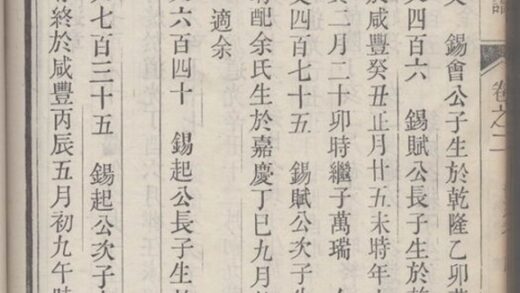 卷之二
錫會公子生於乾隆乙卯
四百六　錫賦公長子生於
於咸豐癸丑正月廿五未時年
二月二十卯時繼子萬瑞
四百七十五　錫賦公次子
配余氏生於嘉慶丁巳九月
適余
六百四十　錫起公長子生於
七百三十五　錫起公次子
終於咸豐丙辰五月初九午時